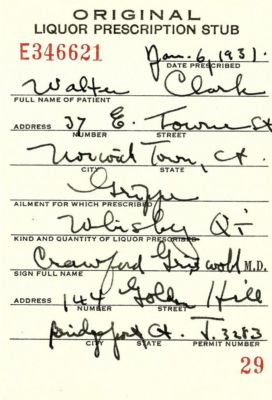 ORIGINAL
LIQUOR PRESCRIPTION STUB
E346621
Jan. 6, 1931.
DATE PRESCRIBED
Walter Clark
FULL NAME OF PATIENT
ADDRESS 37 E. Town St
NUMBER STREET
Norwich Town, Ct.
CITY STATE
Grippe
AILMENT FOR WHICH PRESCRIBED
Whisky Qt
KIND AND QUANTITY OF LIQUOR PRESCRIBED
Crawford Griswold M.D.
SIGN FULL NAME
ADDRESS 144 Golden Hill
NUMBER STREET
Bridgeport Ct. J. 3283
CITY STATE PERMIT NUMBER
29